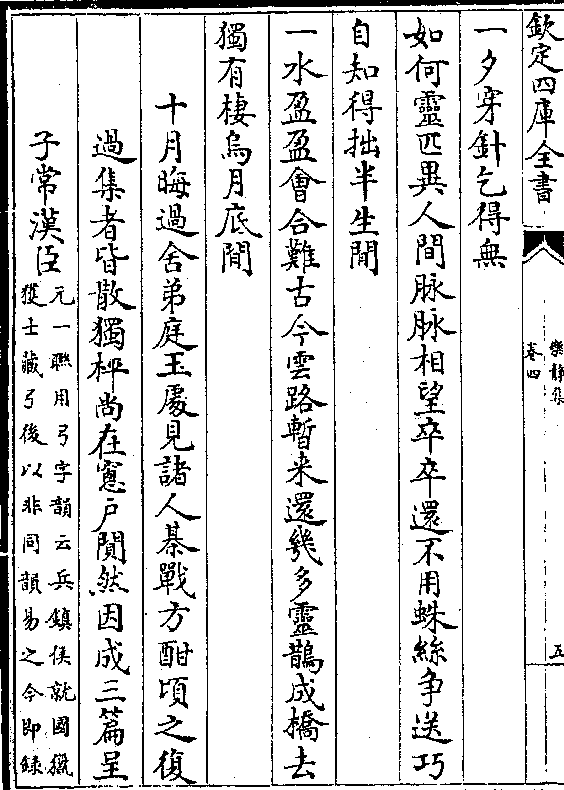 欽定四庫全書
樂靜集
卷四
五
一夕穿針乞得無
如何靈匹異人間脉脉相望卒卒還不用蛛絲争送巧
自知得拙半生間
一水盈盈會合難古今雲路暫来還幾多靈鵲成橋去
獨有棲烏月底閒
十月晦過舍弟庭玉處見諸人棊戰方酣頃之復
過集者皆散獨枰尚在窻户闃然因成三篇呈
子常漢臣
元一聯用弓字韻云兵鎮侯就國獵
獲士藏弓後以非同韻易之今即録